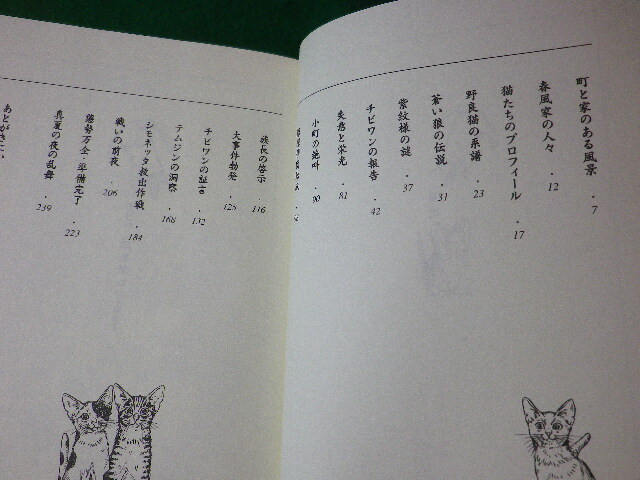 町と家のある風景・7
春風家の人々・12
猫たちのプロフィール・17
野良猫の系譜・23
蒼い狼の伝説・31
紫紋様の謎・37
チビワンの報告・42
失意と栄光・81
小町の絶叫・90
族長の啓示・116
大事件勃発・125
チビワンの証言・132
テムジンの洞察・166
シモネッタ救出作戦・184
戦いの前夜・206
態勢万全・準備完了・223
真夏の夜の乱舞・239